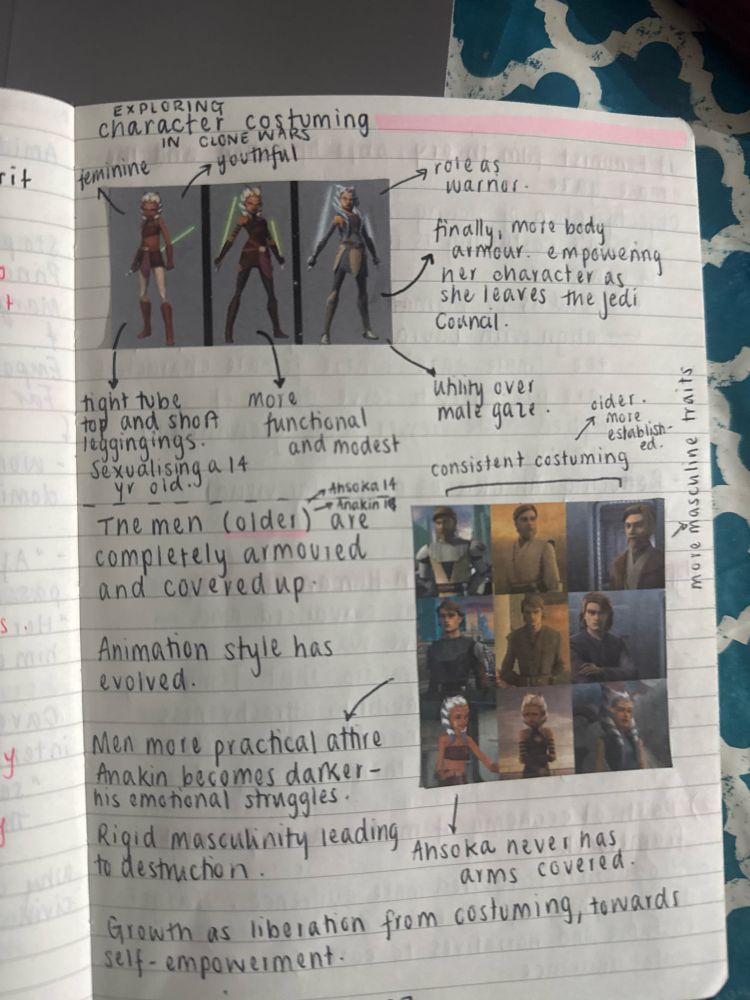 EXPLORING
character costuming
IN CLONE WARS
feminine
youthful
role as
warrior.
finally, more body
armour. empowering
her character as
she leaves the Jedi
Council.
tight tube
top and short
leggingings.
Sexualising a 14
yr old.
more
functional
and modest
utility over
male gaze.
older.
more
establish-
ed.
consistent costuming
more masculine traits
Ahsoka 14
Anakin 18
The men (older) are
completely armoured
and covered up.
Animation style has
evolved.
Men more practical attire
Anakin becomes darker -
his emotional struggles.
Rigid masculinity leading
to destruction.
Ahsoka never has
arms covered.
Growth as liberation from costuming, towards
self-empowerment.